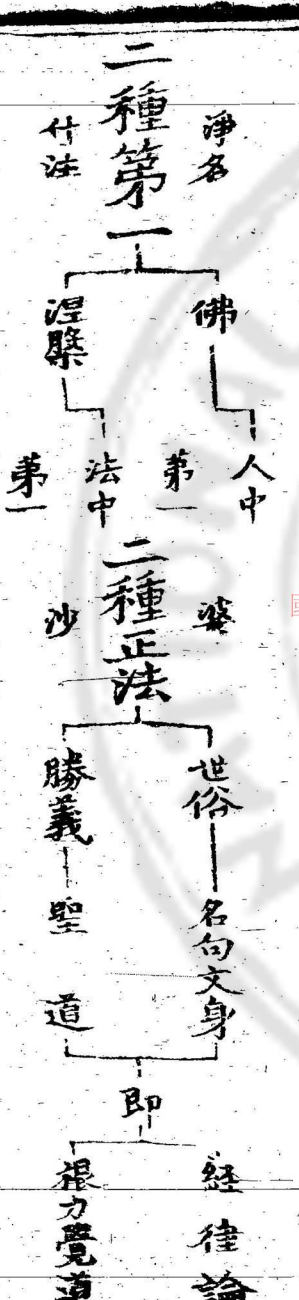 二種第一
淨名
什注
佛
人中
第一
涅槃
法中
第一
二種正法
婆
沙
世俗
名句文身
勝義
聖道
即
經律論
根力覺道